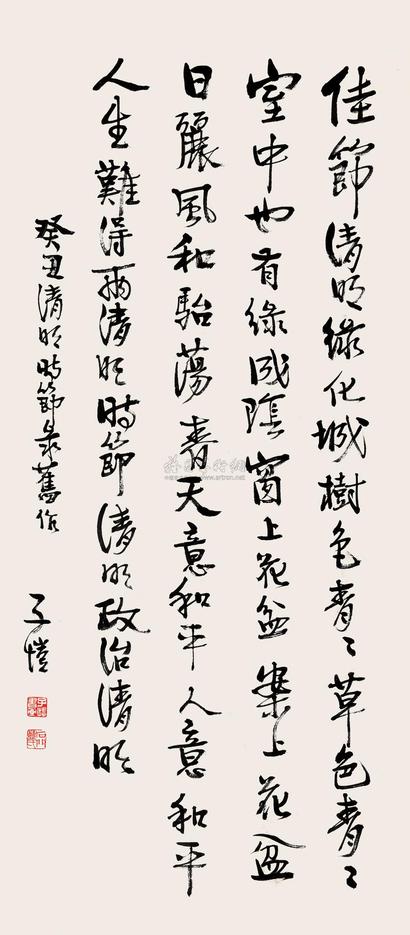 佳節清明綠化城樹色青〻草色青〻
室中也有綠成陰窗上花盆案上花盆
日麗風和駘蕩青天意和平人意和平
人生難得兩清明時節清明政治清明
癸丑清明時節錄舊作
子愷